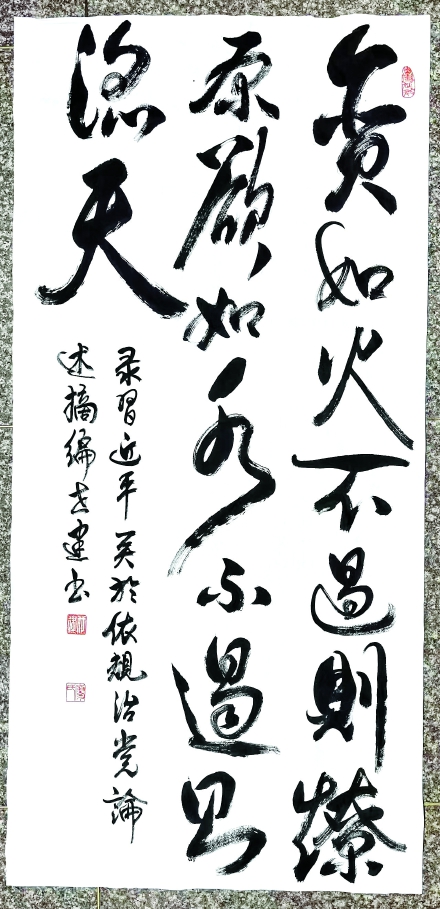 贪如火不遏則燎
原欲如水不遏则
滔天
录習近平关於依規治党論
述摘编 建书